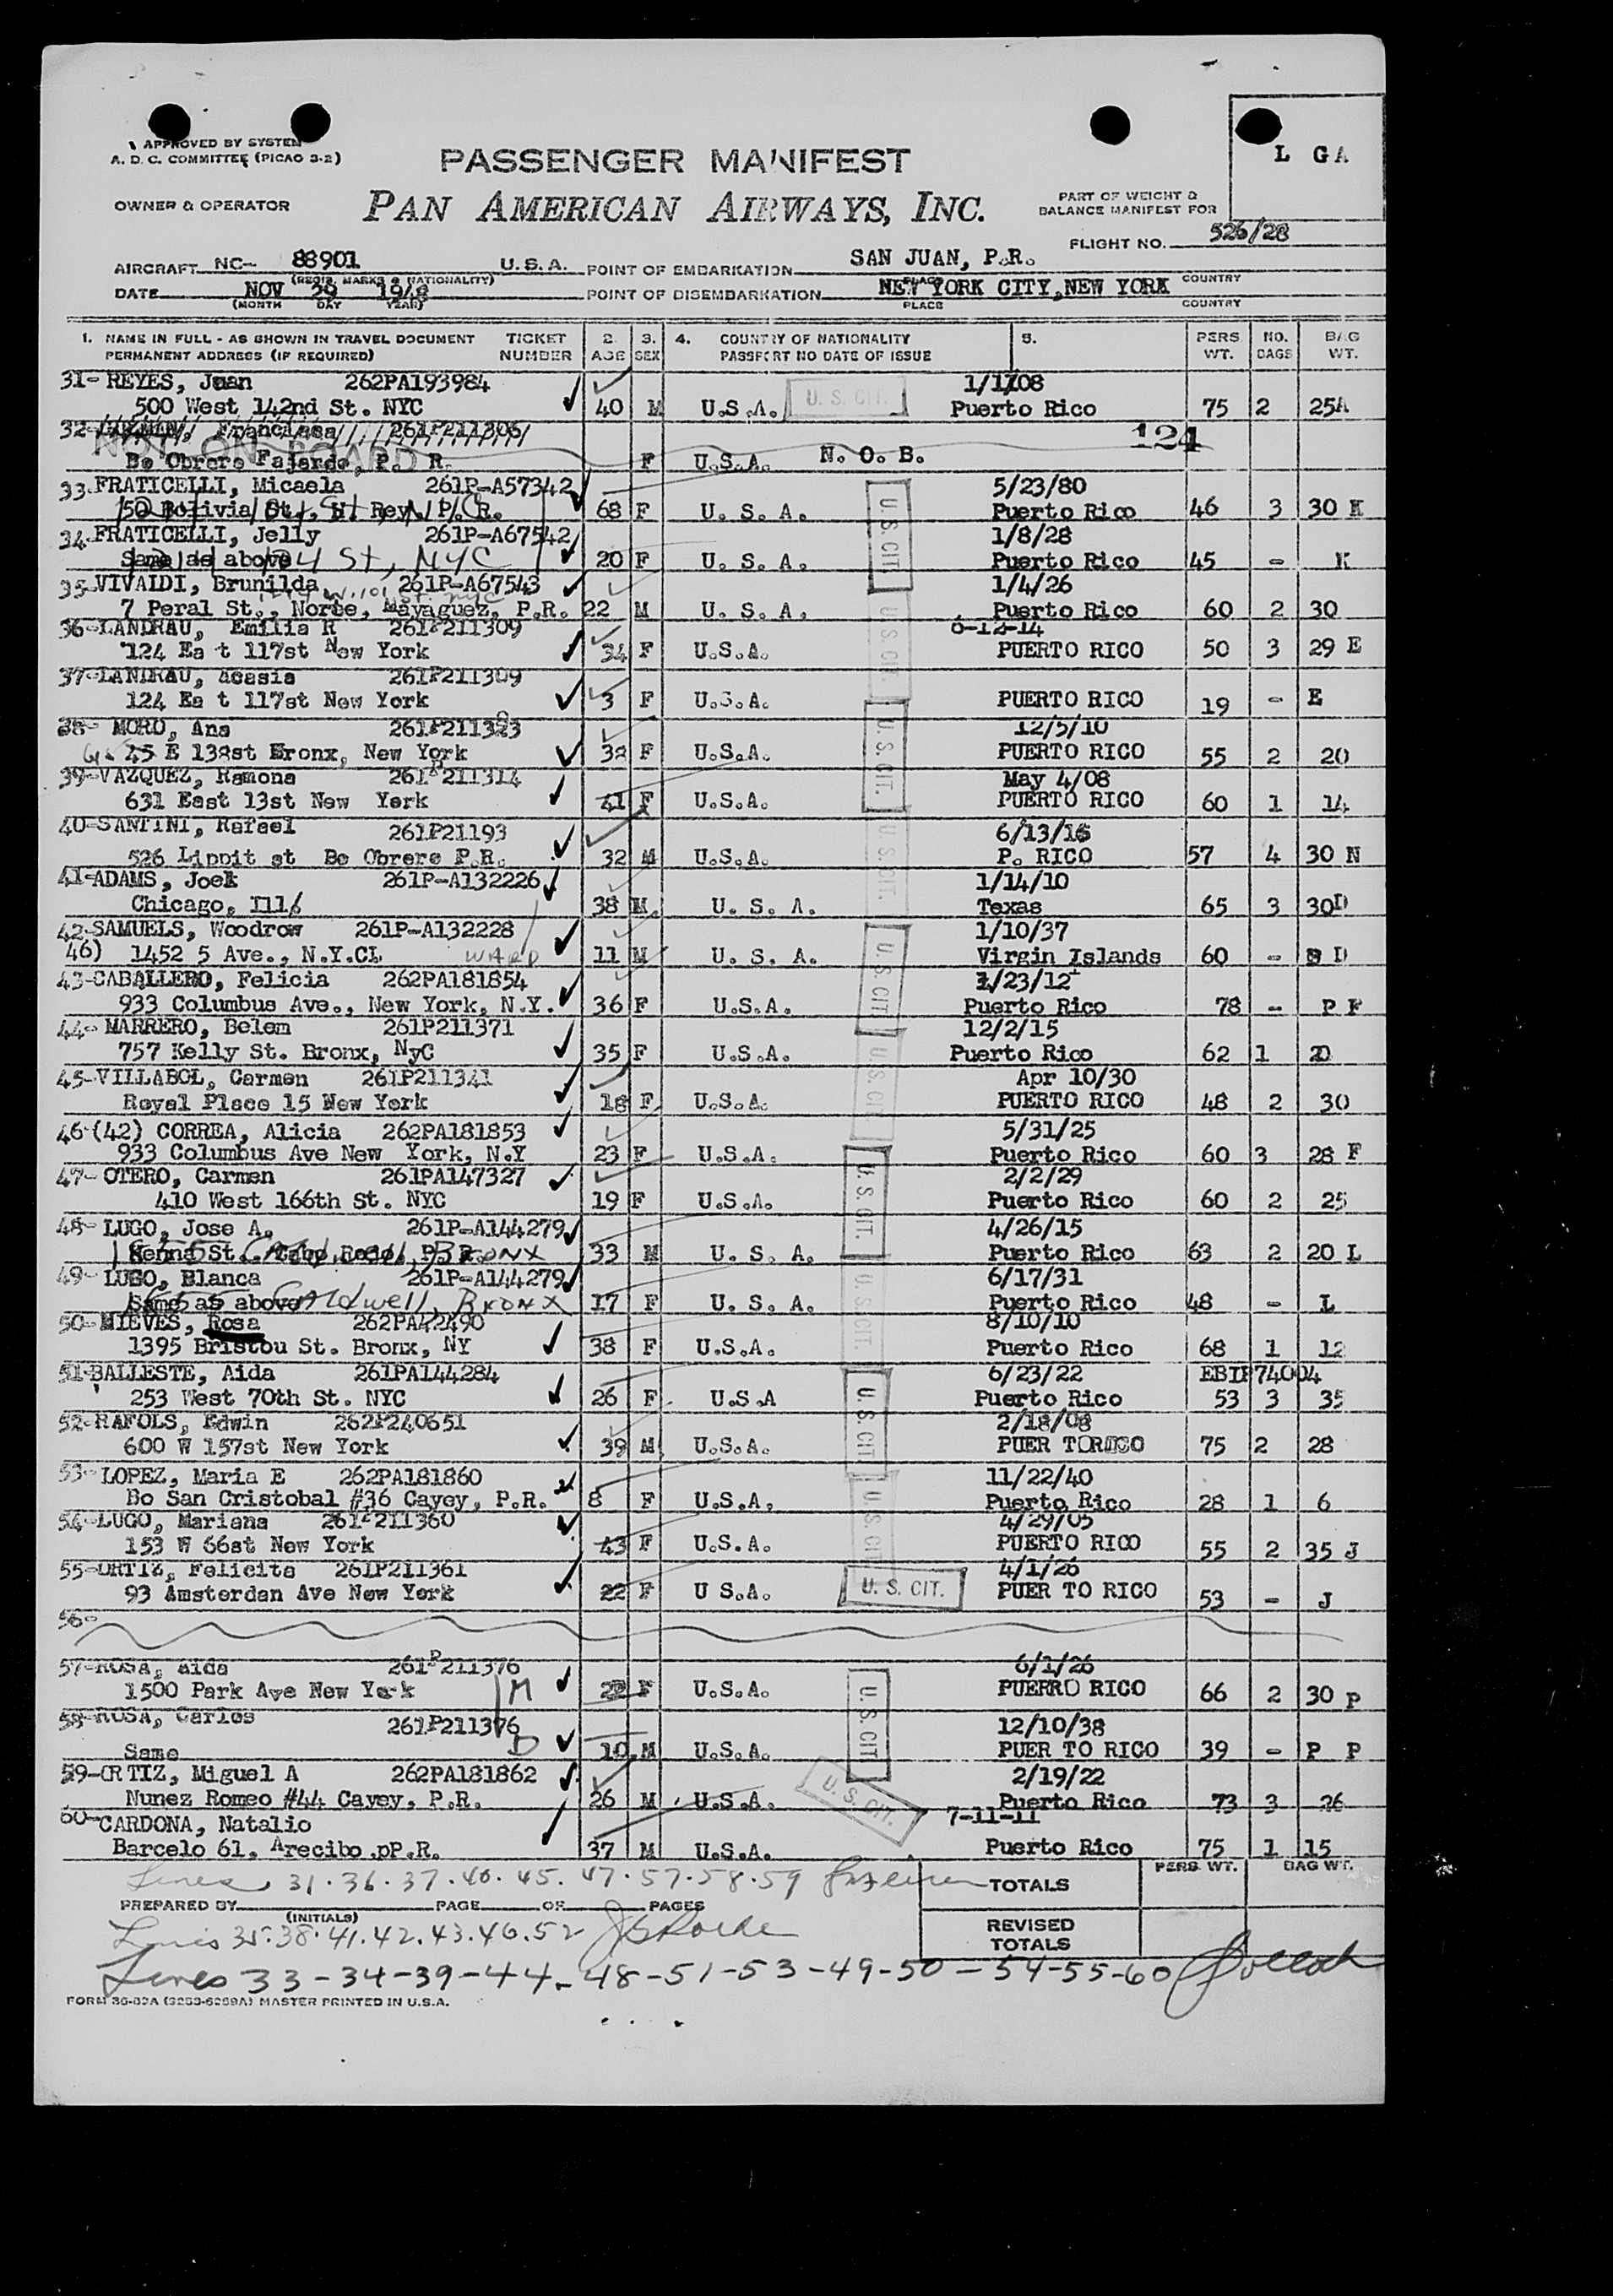 APPROVED BY SYSTEM
A. D. C. COMMITTEE (PICAO 3-2)
L GA
PASSENGER MANIFEST
OWNER & OPERATOR
PAN AMERICAN AIRWAYS, INC.
PART OF WEIGHT &
BALANCE MANIFEST FOR
FLIGHT NO. 526/28
AIRCRAFT NC- 88901 U.S.A. POINT OF EMBARKATION SAN JUAN, P.R.
(REGIS. MARKS & NATIONALITY) PLACE COUNTRY
DATE NOV 29 1948 POINT OF DISEMBARKATION NEW YORK CITY, NEW YORK
(MONTH DAY YEAR) PLACE COUNTRY
1. NAME IN FULL - AS SHOWN IN TRAVEL DOCUMENT TICKET 2. 3. 4. COUNTRY OF NATIONALITY 5. PERS. NO. BAG
PERMANENT ADDRESS (IF REQUIRED) NUMBER AGE SEX PASSPORT NO DATE OF ISSUE WT. BAGS WT.
31- REYES, Juan 262PA193984 1/1/08
500 West 142nd St. NYC 40 M U.S.A. U. S. CIT. Puerto Rico 75 2 25A
32- Francisca 261P211306 124
NOT ON BOARD
Bo Obrero Fajardo, P. R. F U.S.A. N. O. B.
33 FRATICELLI, Micaela 261P-A57342 5/23/80
50 Bolivia St., H. Rey, P. R. 68 F U. S. A. U. S. CIT. Puerto Rico 46 3 30 K
34 FRATICELLI, Jelly 261P-A67542 1/8/28
Same as above St, NYC 20 F U. S. A. Puerto Rico 45 - K
35- VIVAILDI, Brunilda 261P-A67543 1/4/26
7 Peral St., Norte, Mayaguez, P.R. 22 M U. S. A. U. S. CIT. Puerto Rico 60 2 30
36- LANDRAU, Emilia R 261P211309 6-12-14
124 Ea t 117st New York 34 F U.S.A. PUERTO RICO 50 3 29 E
37- LANDRAU, Acasia 261P211309
124 Ea t 117st New York 3 F U.S.A. PUERTO RICO 19 - E
38- MORO, Ana 261P211323 12/5/10
45 E 138st Bronx, New York 38 F U.S.A. U. S. CIT. PUERTO RICO 55 2 20
39- VAZQUEZ, Ramona 261P211314 May 4/08
631 East 13st New York 41 F U.S.A. PUERTO RICO 60 1 14
40- SANTINI, Rafael 261P21193 6/13/16
526 Lippit st Bo Obrero P.R. 32 M U.S.A. U. S. CIT. P. RICO 57 4 30 N
41- ADAMS, Joek 261P-A132226 1/14/10
Chicago, Ill 38 M U. S. A. Texas 65 3 30D
42- SAMUELS, Woodrow 261P-A132228 1/10/37
46) 1452 5 Ave., N.Y.CI. WARD 11 M U. S. A. U. S. CIT. Virgin Islands 60 - D
43- CABALLERO, Felicia 262PA181854 1/23/12
933 Columbus Ave., New York, N.Y. 36 F U.S.A. Puerto Rico 78 - P F
44- MARRERO, Belem 261P211371 12/2/15
757 Kelly St. Bronx, NyC 35 F U.S.A. U. S. CIT. Puerto Rico 62 1 20
45- VILLABOL, Carmen 261P211341 Apr 10/30
Royal Place 15 New York 18 F U.S.A. PUERTO RICO 48 2 30
46-(42) CORREA, Alicia 262PA181853 5/31/25
933 Columbus Ave New York, N.Y 23 F U.S.A. Puerto Rico 60 3 28 F
47- OTERO, Carmen 261PA147327 2/2/29
410 West 166th St. NYC 19 F U.S.A. U. S. CIT. Puerto Rico 60 2 25
48- LUGO, Jose A. 261P-A144279 4/26/15
Henna St. Cabo Rojo, P.R. BRONX 33 M U. S. A. Puerto Rico 63 2 20 L
49- LUGO, Blanca 261P-A144279 6/17/31
Same as above Caldwell, BRONX 17 F U. S. A. U. S. CIT. Puerto Rico 48 - L
50- NIEVES, Rosa 262PA42490 8/10/10
1395 Bristou St. Bronx, NY 38 F U.S.A. Puerto Rico 68 1 12
51- BALLESTE, Aida 261PA144284 6/23/22 EBIP74004
253 West 70th St. NYC 26 F U.S.A U. S. CIT. Puerto Rico 53 3 35
52- RAFOLS, Edwin 262P240651 2/18/08
600 W 157st New York 39 M U.S.A. 75 2 28
53- LOPEZ, Maria E 262PA181860 11/22/40
Bo San Cristobal #36 Cayey, P.R. 8 F U.S.A. U. S. CIT. Puerto Rico 28 1 6
54- LUGO, Mariana 261P211360 4/29/05
153 W 66st New York 43 F U.S.A. PUERTO RICO 55 2 35 J
55- ORTIZ, Felicita 261P211361 4/1/26
93 Amsterdan Ave New York 22 F U S.A. U. S. CIT. PUER TO RICO 53 - J
56-
57- ROSA, Aida 261P211376 6/1/26
1500 Park Ave New York M F U.S.A. U. S. CIT. RICO 66 2 30 P
58- ROSA, Carlos 261P211376 12/10/38
Same D 10 M U.S.A. PUER TO RICO 39 - P P
59- ORTIZ, Miguel A 262PA181862 2/19/22
Nunez Romeo #44 Cayey, P.R. 26 M U.S.A. U. S. CIT. Puerto Rico 73 3 26
60- CARDONA, Natalio 7-11-11
Barcelo 61, Arecibo, pP.R. 37 M U.S.A. Puerto Rico 75 1 15
Lines 31.36.37.40.45.47.57.58.59 TOTALS PERS. WT. BAG WT.
PREPARED BY PAGE OF PAGES
(INITIALS)
Lines 35.38.41.42.43.46.52 REVISED TOTALS
Lines 33-34-39-44-48-51-53-49-50-54-55-60
FORM 36-02A MASTER PRINTED IN U.S.A.